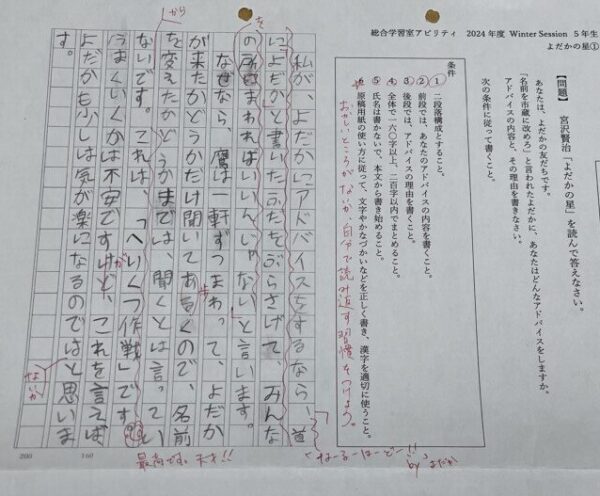 総合学習室アビリティ 2024年度 Winter Session 5年生
よだかの星①
【問題】 宮沢賢治「よだかの星」を読んで答えなさい。
あなたは、よだかの友だちです。
「名前を市蔵に改めろ」と言われたよだかに、あなたはどんなアドバイスをしますか。
アドバイスの内容と、その理由を書きなさい。
次の条件に従って書くこと。
条件
① 二段落構成とすること。
② 前段では、あなたのアドバイスの内容を書くこと。
③ 後段では、アドバイスの理由を書くこと。
④ 全体で一六〇字以上、二百字以内でまとめること。
⑤ 氏名は書かないで、本文から書き始めること。
⑥ 原稿用紙の使い方に従って、文字やかなづかいなどを正しく書き、漢字を適切に使うこと。
おかしいところがないか、自分で読み返す習慣をつけよう。
私が、よだかにアドバイスをするなら、首
によだかと書いたふだをぶらさげて、みんな
の所をまわればいいんじゃないと言います。
なぜなら、鷹は一軒ずつまわって、よだか
が来たかどうかだけ聞いてあるくので、名前
を変えたかどうかまでは、聞くとは言ってい
ないです。これは、「へいくつ作戦」です。
うまくいくかは不安ですけど、これを言えば
よだかも少しは気が楽になるのではと思いま
す。
を
から
歩
が
ないか
最高です。天才!!
なーるーほーどー!!
by よだか
160
200